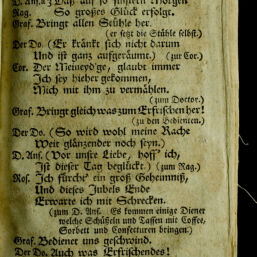 D. Ans. a 2 Daß auf so finstern Morgen
Rag. So großes Glück erfolgt.
Graf. Bringt allen Stühle her.
(er sezt die Stühle selbst.)
Der Do. (Er kränkt sich nicht darum
Und ist ganz aufgeräumt.) (zur Cor.)
Cor. Der Meineyd'ge, glaubt immer
Ich sey hieher gekommen,
Mich mit ihm zu vermählen.
(zum Doctor.)
Graf. Bringt gleich was zum Erfrischen her!
(zu den Bedienten.)
Der Do. (So wird wohl meine Rache
Weit glänzender noch seyn.)
D. Ans. (Vor unsre Liebe, hoff' ich,
Ist dieser Tag beglückt.) (zum Rag.)
Ros. Ich fürcht' ein groß Geheimniß,
Und dieses Jubels Ende
Erwarte ich mit Schrecken.
(zum D. Ans. Es kommen einige Diener
welche Schüsseln und Tassen mit Coffee,
Sorbett und Confecturen bringen.)
Graf. Bediener uns geschwind.
Der Do. Auch was Erfrischendes!